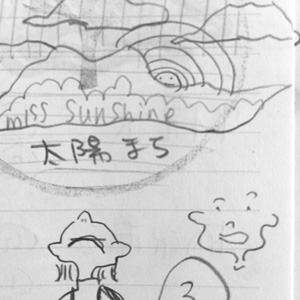 miss Sunshine
太陽まち
3